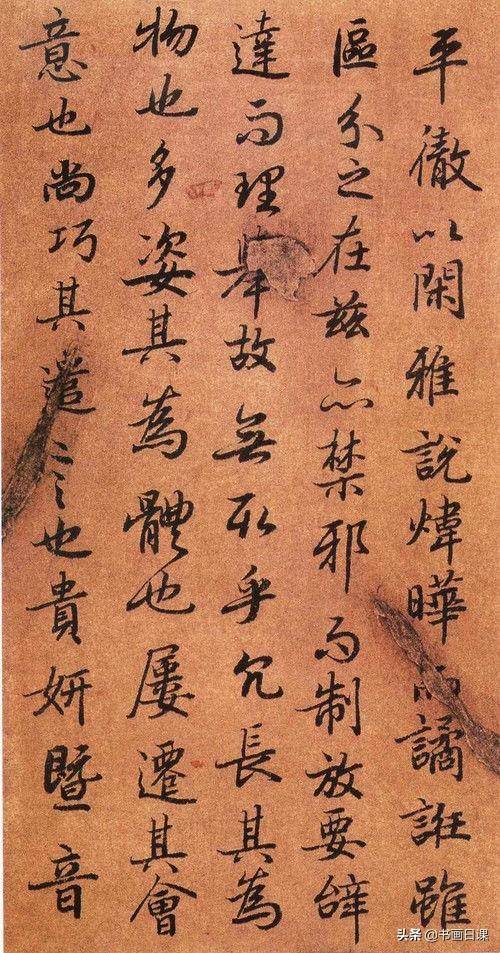 平徹以閑雅說煒曄而譎誑雖
區分之在茲亦禁邪而制放要辞
達而理舉故無取乎冗長其為
物也多姿其為體也屢遷其會
意也尚巧其遣言也貴妍暨音
头条 @书画日课